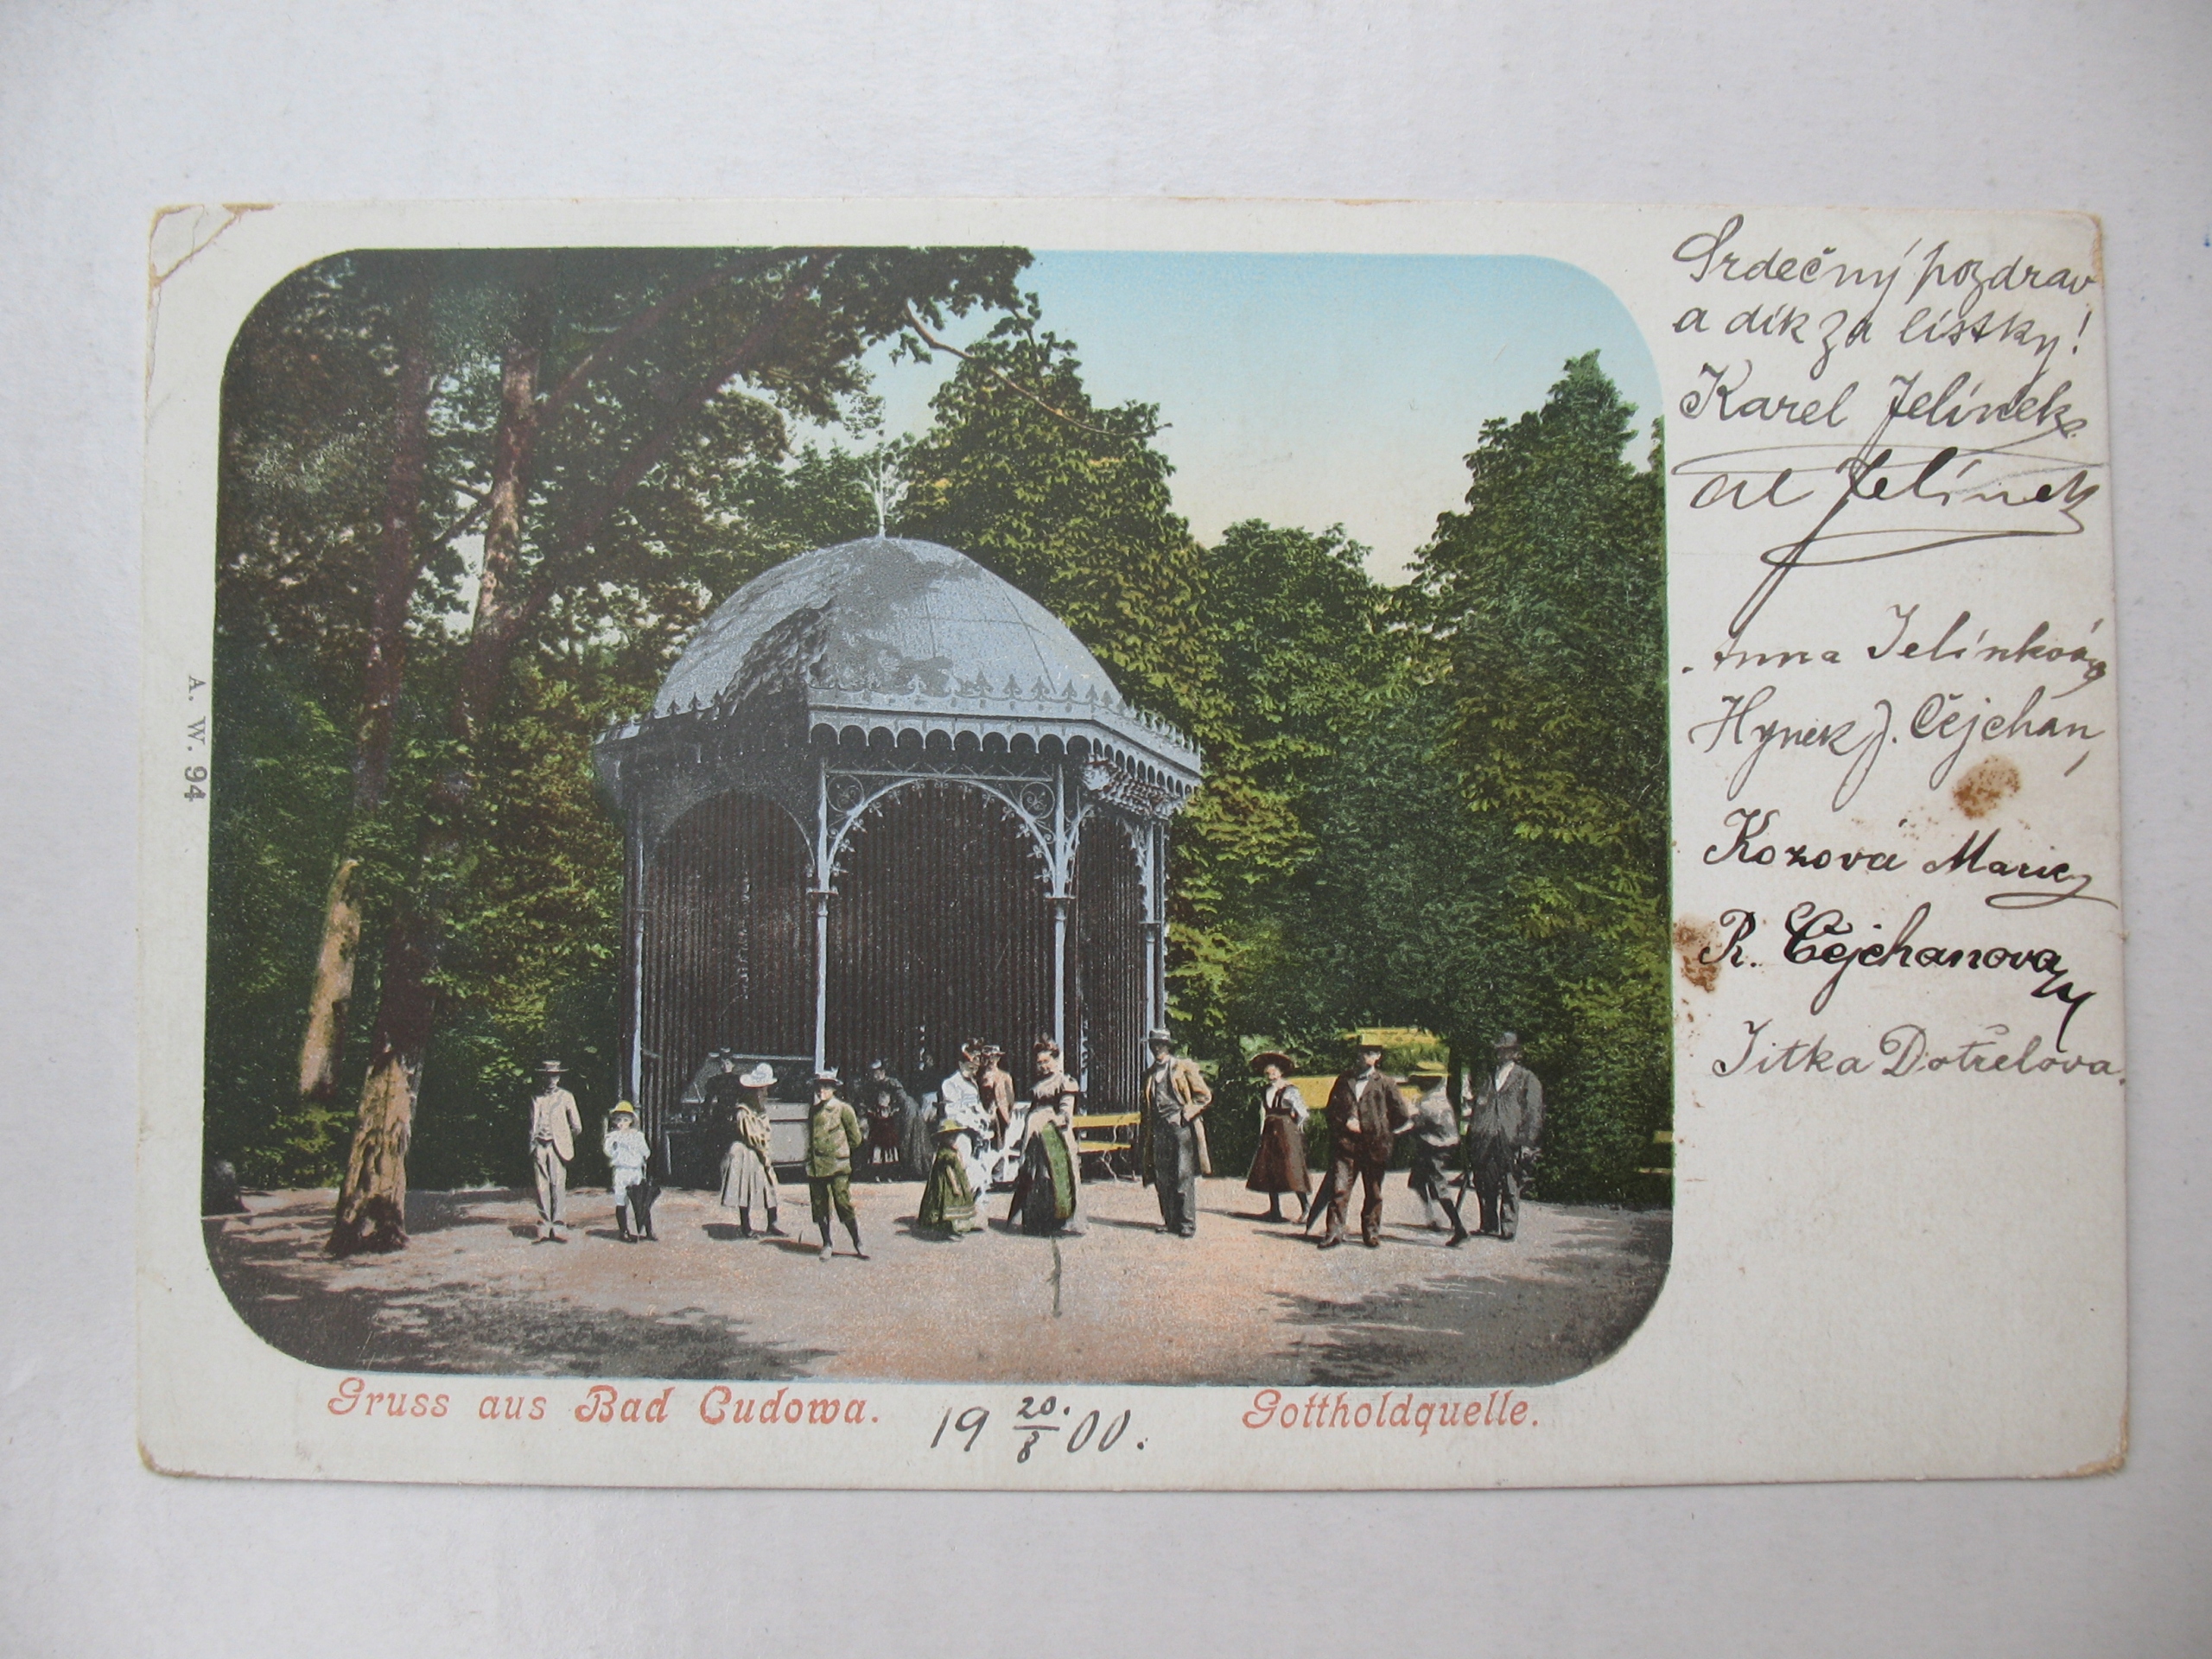 Srdečný pozdrav
a dík za lístky!
Karel Jelínek
Jelínek
Anna Jelínková
Hynek J. Čejchan,
Kozová Marie
R. Čejchanova
Jitka Dotřelova.
A. W. 94
Gruss aus Bad Cudowa.
19 20./8 00.
Gottholdquelle.